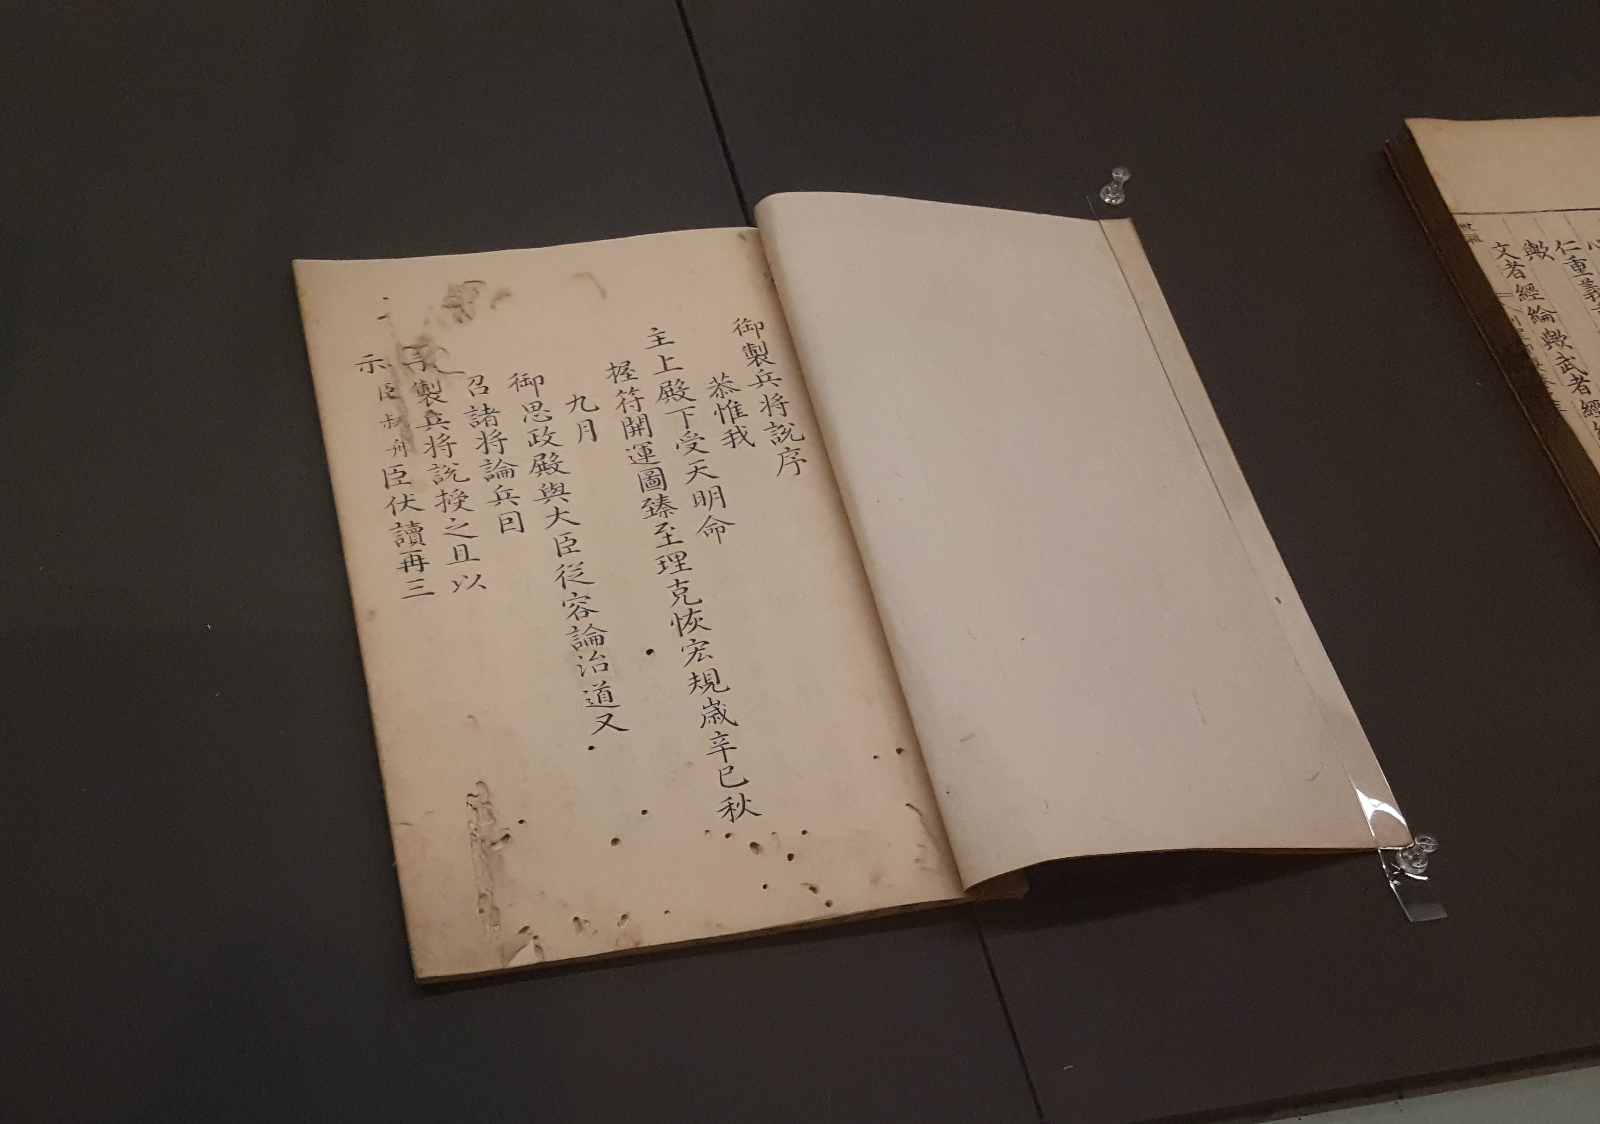 御製兵将說序
恭惟我
主上殿下受天明命
握符開運圖臻至理克恢宏規歲辛巳秋
九月
御思政殿與大臣從容論治道又
召諸将論兵曰
手製兵将說授之且以
示臣叔舟臣伏讀再三
仁重義
歟
文者經綸歟武者經